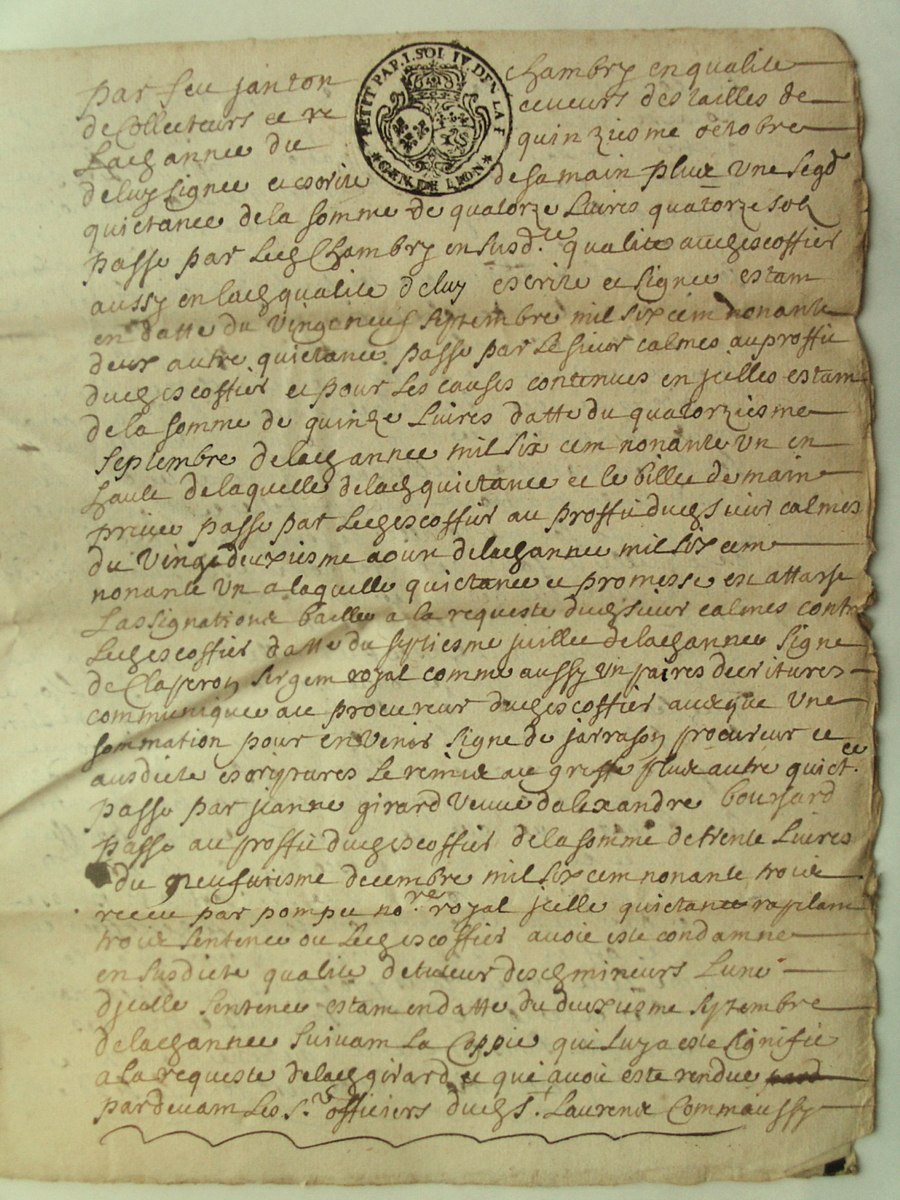 PETIT PAP. I. SOL IV. DEN. LA F.
GEN. DE LION
par feu janton Chambry en qualite
de Collecteurs et receveurs des tailles de
Ladz annee du quinziesme octobre
de luy signee et escrite de sa main plux une segd
quictance de la somme de quatorze Livres quatorze solz
passe par Ledz Chambry en susd.te qualite audz escoffier
aussy en ladz qualite de luy escrite et signee estam
en datte du vingt neuf septembre mil six cem nonante
deux autre quictance passe par Le sieur calmes au proffit
dudz escoffier et pour Les causes contenues en jcelles estam
de la somme de quinze Livres datte du quatorziesme
septembre deladz annee mil six cem nonante un en
de laquelle deladz quictance et le billet de main
privee passe par Ledz escoffier au proffit dudz sieur calmes
du vingt deuxiesme aoust deladz annee mil six cem
nonante un a laquelle quictance et promesse est attaché
Lassignation baillee a la requeste dudz sieur calmes contre
Ledz escoffier datte du septiesme juillet deladz annee signe
de Claperon sergem royal comme aussy un paires descritures
communiquee au procureur dudz escoffier avecque une
sommation pour en venir signe de jarrason procureur et
ausdicte escriptures Le remix au greffe plux autre quict.ce
passe par jeanne girard veuve dalexandre boursard
passe au proffit dudz escoffier de la somme de trente Livres
du neufviesme decembre mil six cem nonante troix
receu par pompee no.re royal jcelle quictance rappelam
troix sentence ou Ledz escoffier avoit este condamne
en susdicte qualite de tuteur desdz mineurs Lune
djcelle sentence estam en datte du deuxiesme septembre
deladz annee suivam La Coppie qui luy a este signifie
a La requeste deladz girard et qui avoit este rendue
pardevam Les s.rs officiers dudz S. Laurend Comm aussy